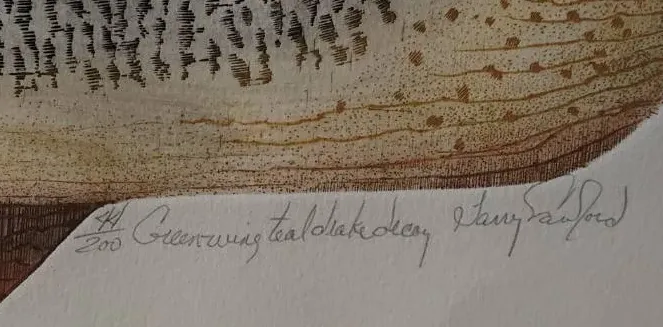 44/200 Greenwing teal drake decoy Garry Sanford